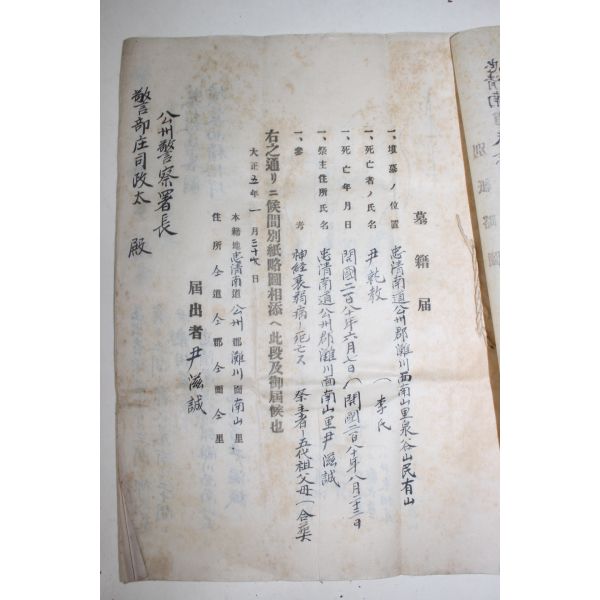 墓籍届
一、墳墓ノ位置 忠清南道公州郡灘川面南山里泉谷山民有山
一、死亡者ノ氏名 尹乾教 (李氏
一、死亡年月日 開國二百八十年六月七日(開國二百八十年八月二十三日
一、祭主住所氏名 忠清南道公州郡灘川面南山里尹滋誠
一、參考 神経衰弱病ニ死亡ス 祭主者ノ五代祖父母(合葬
右之通リニ候間別紙略圖相添ヘ此段及御届候也
大正五年一月二十七日
本籍地忠清南道公州郡灘川面南山里
住所仝道仝郡仝面仝里
届出者尹滋誠
公州警察署長
警部庄司政太殿
忠清南道